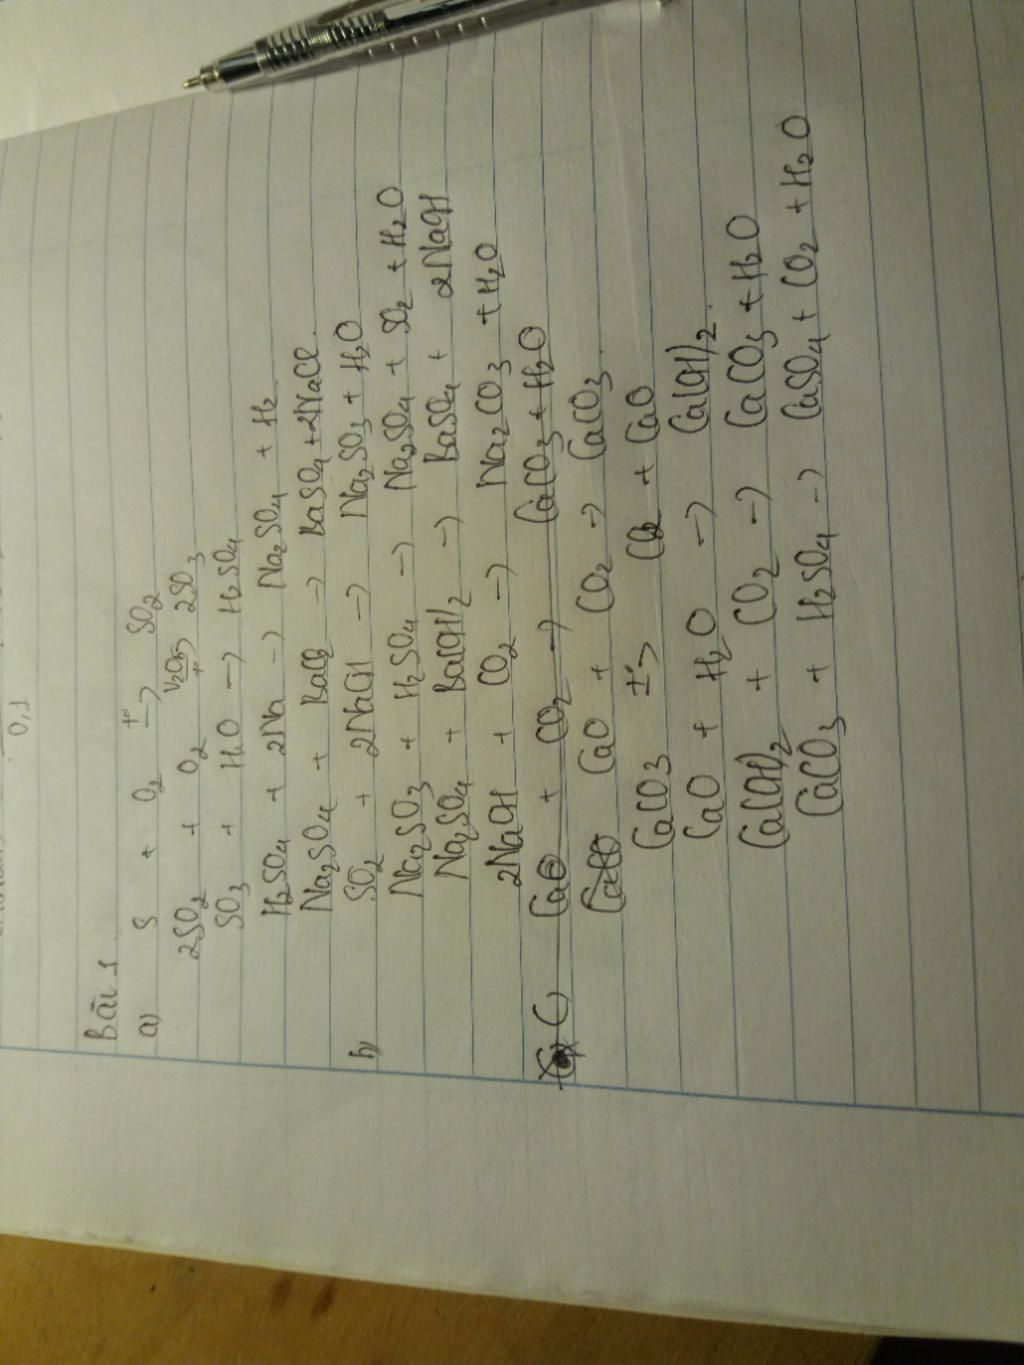 0,1
Bài 1
a) S + O2 t°→ SO2
2SO2 + O2 V2O5 t°→ 2SO3
SO3 + H2O → H2SO4
H2SO4 + 2Na → Na2SO4 + H2
Na2SO4 + BaCl2 → BaSO4 + 2NaCl.
b) SO2 + 2NaOH → Na2SO3 + H2O
Na2SO3 + H2SO4 → Na2SO4 + SO2 + H2O
Na2SO4 + Ba(OH)2 → BaSO4 + 2NaOH
2NaOH + CO2 → Na2CO3 + H2O
c) CaO + CO2 → CaCO3 + H2O
CaO + CO2 → CaCO3.
CaCO3 t°→ CO2 + CaO
CaO + H2O → Ca(OH)2.
Ca(OH)2 + CO2 → CaCO3 + H2O
CaCO3 + H2SO4 → CaSO4 + CO2 + H2O